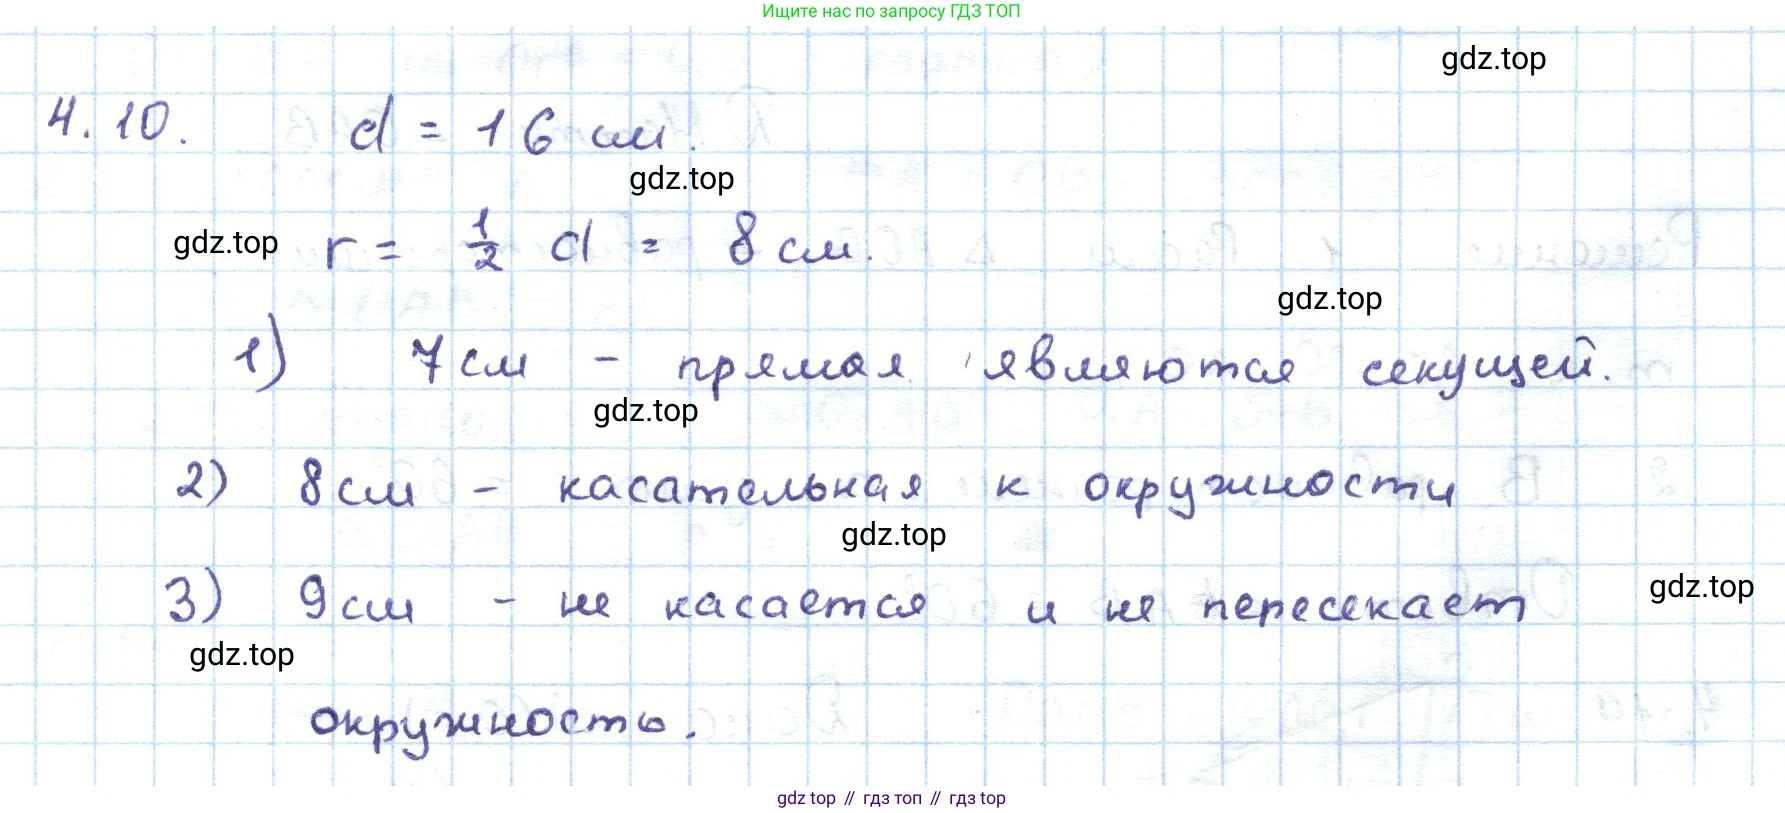 Ищите нас по запросу ГДЗ ТОП
gdz.top
4.10. d = 16 см.
gdz.top
gdz.top r = 1/2 d = 8 см.
gdz.top
1) 7 см - прямая являются секущей.
gdz.top
2) 8 см - касательная к окружности
gdz.top
3) 9 см - не касается и не пересекает
gdz.top
gdz.top
окружность.
gdz top // гдз топ // gdz top